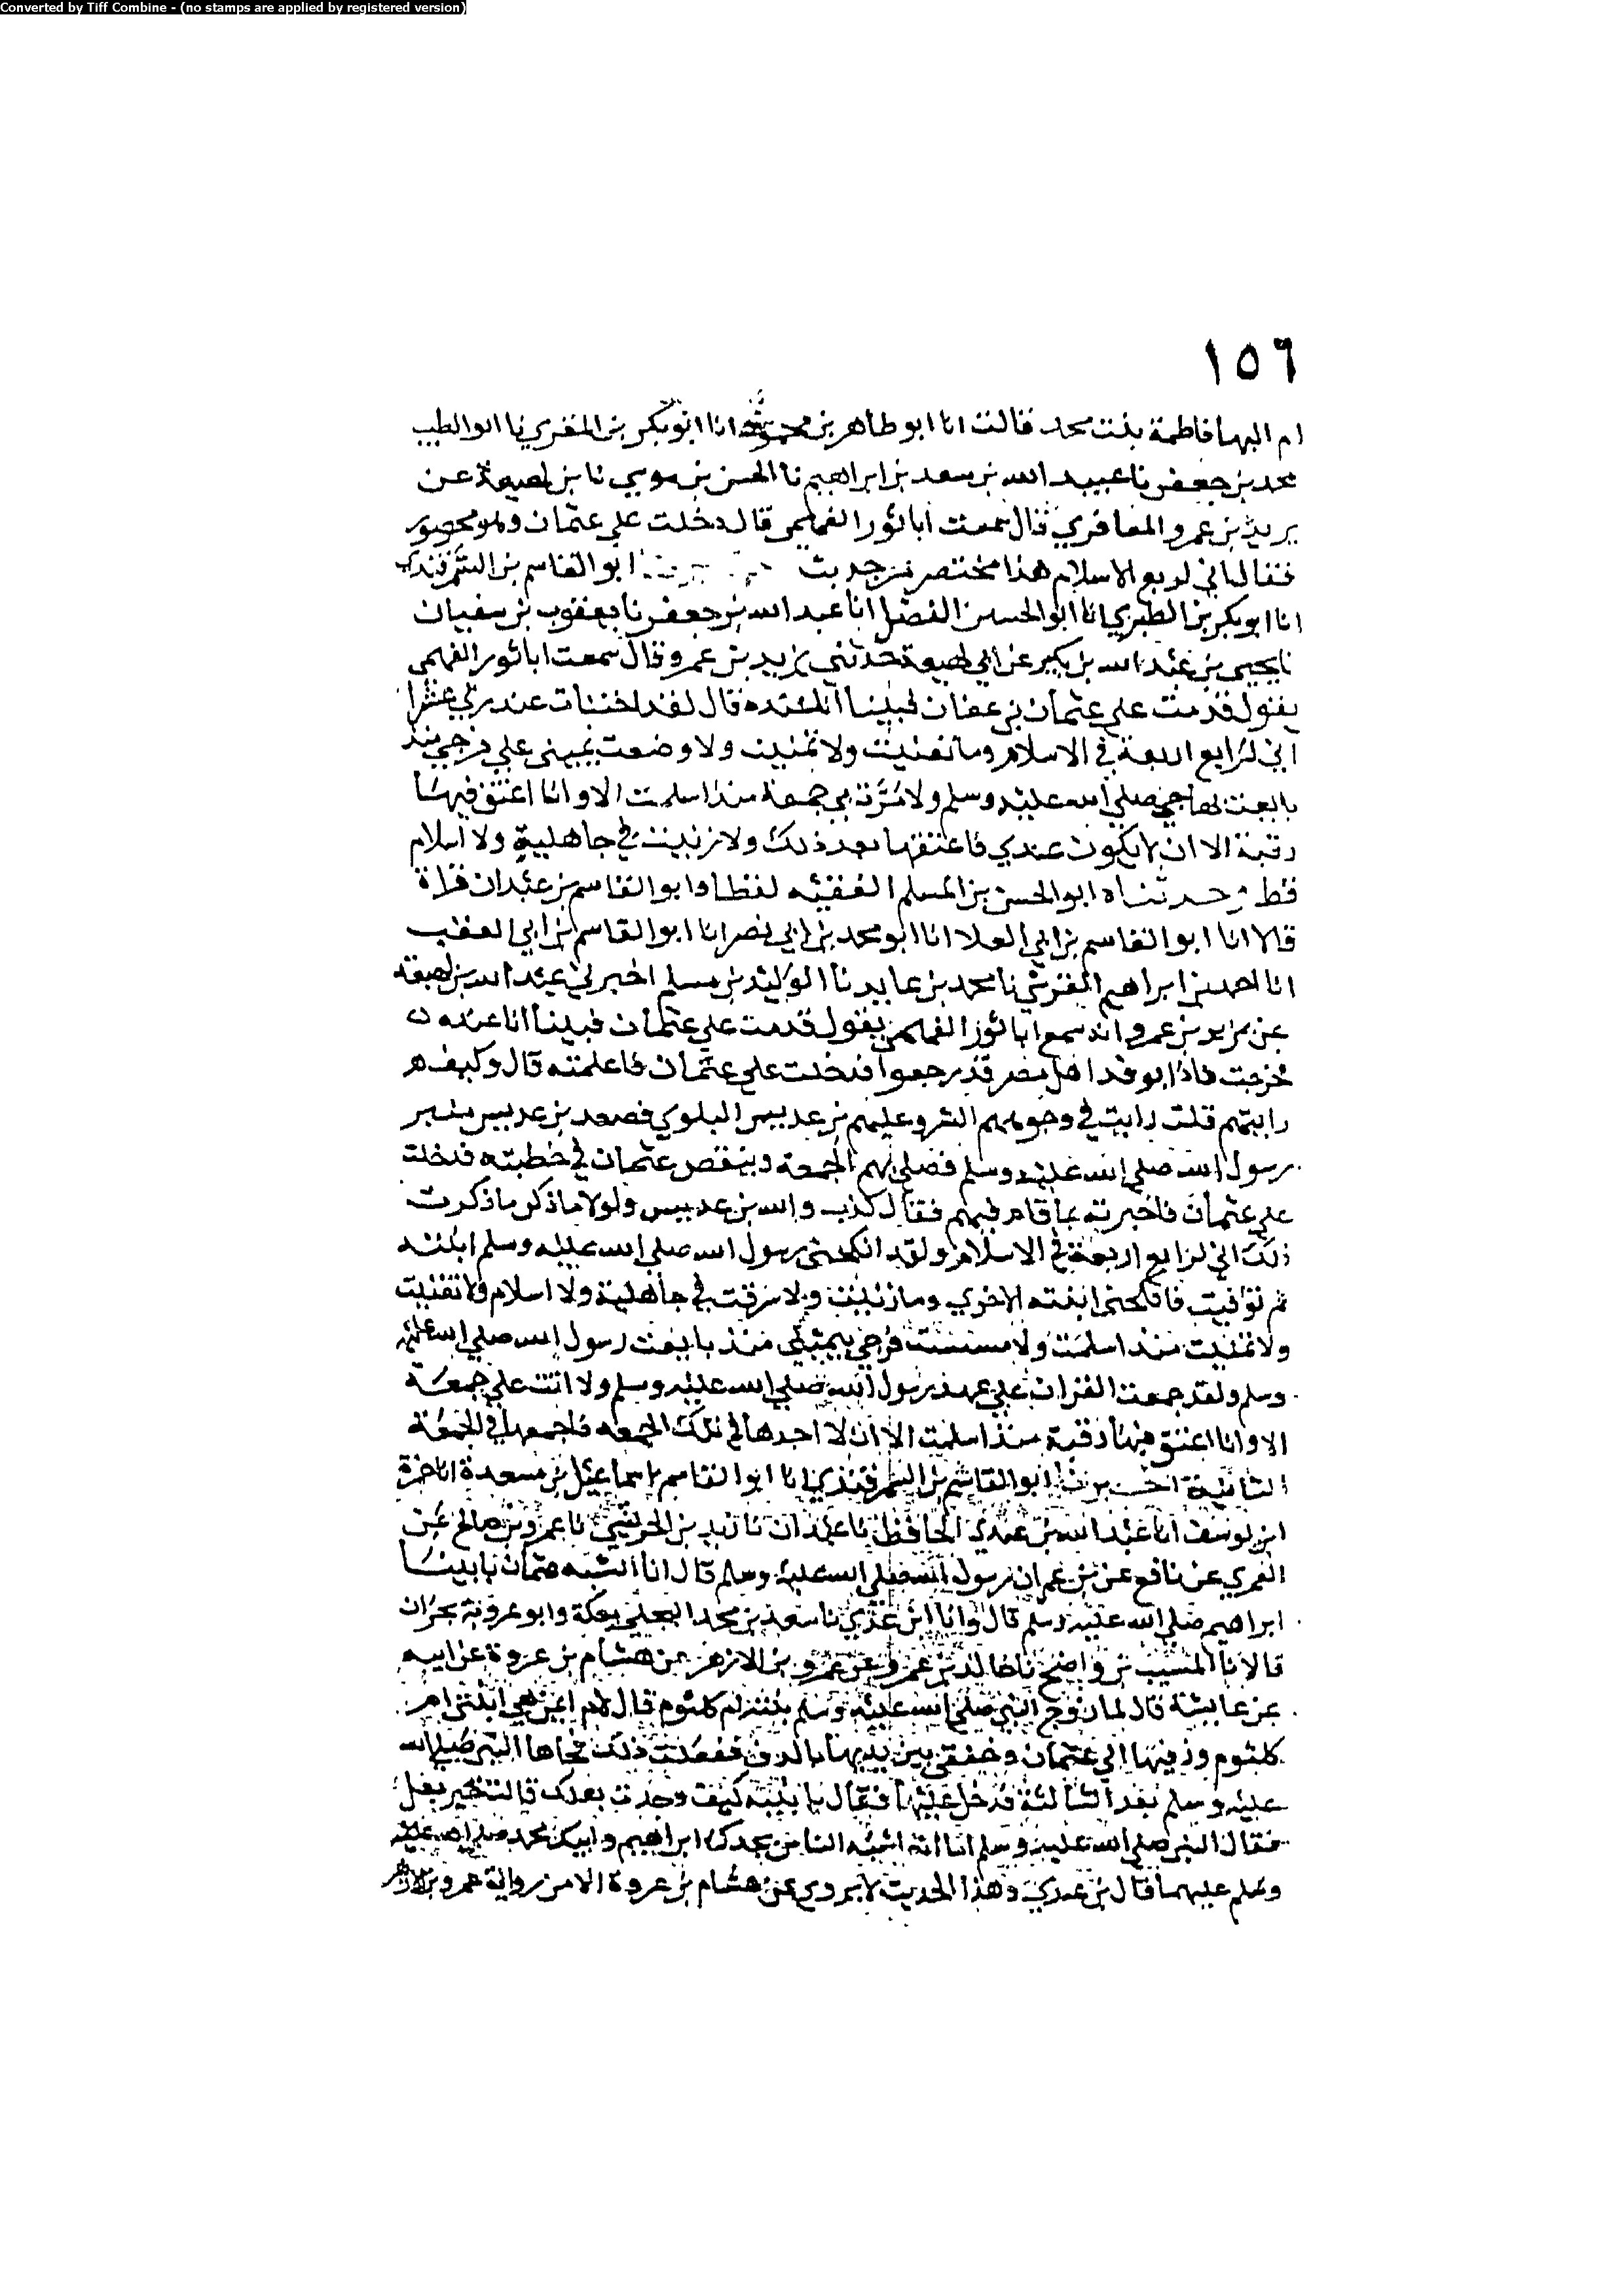 Converted by Tiff Combine - (no stamps are applied by registered version)
١٥٦
ام البها فاطمة بنت محمد قالت انا ابو طاهر بن محمود انا ابو بكر بن المقري نا ابو الطيب
محمد بن جعفر نا عبيد الله بن سعد بن ابراهيم نا الحسن بن موسي نا بن لهيعة عن
يزيد بن عمرو المعافري قال سمعت ابا ثور الفهمي قال دخلت علي عثمان وهو محصور
فقال اني لربع الاسلام هذا مختصر من حديث ابو القاسم بن السمرقندي
انا ابو بكر بن الطبري انا ابو الحسين بن الفضل انا عبد الله بن جعفر نا يعقوب بن سفيان
نا يحيى بن عبد الله بن بكير عن ابي لهيعة حدثني يزيد بن عمرو قال سمعت ابا ثور الفهمي
يقول قدمت علي عثمان بن عفان فبينا انا عنده قال لقد اختبات عند ربي عشرا
اني لرابع اربعة في الاسلام وما تغنيت ولا تمنيت ولا وضعت يميني علي فرجي منذ
بايعت بها حبي صلي الله عليه وسلم ولا مرت بي جمعة منذ اسلمت الا وانا اعتق فيها
رقبة الا ان لا يكون عندي فاعتقها بعد ذلك ولا زنيت في جاهلية ولا اسلام
قط حدثناه ابو الحسن بن المسلم الفقيه لفظا وابو القاسم بن عبدان قراة
قالا انا ابو القاسم بن ابي العلا انا ابو محمد بن ابي نصر انا ابو القاسم بن ابي العقب
انا احمد بن ابراهيم القرشي نا محمد بن عايد نا الوليد بن مسلم اخبرني عبد الله بن لهيعة
عن يزيد بن عمرو انه سمع ابا ثور الفهمي يقول قدمت علي عثمان فبينا انا عنده
خرجت فاذا بوفد اهل مصر قد رجعوا فدخلت علي عثمان فاعلمته قال وكيف
رايتهم قلت رايت في وجوههم الشر وعليهم بن عديس البلوي فصعد بن عديس منبر
رسول الله صلي الله عليه وسلم فصلي بهم الجمعة وينقص عثمان في خطبته فدخلت
علي عثمان فاخبرته بما قام فيهم فقال كذب والله بن عديس ولولا ما ذكر ما ذكرت
ذلك اني لرابع اربعة في الاسلام ولقد انكحني رسول الله صلي الله عليه وسلم ابنته
ثم توفيت فانكحني ابنته الاخري وما زنيت ولا سرقت في جاهلية ولا اسلام ولا تغنيت
ولا تمنيت منذ اسلمت ولا مسست فرجي بيميني منذ بايعت رسول الله صلي الله عليه
وسلم ولقد جمعت القران علي عهد رسول الله صلي الله عليه وسلم ولا اتت علي جمعة
الا وانا اعتق فيها رقبة منذ اسلمت الا ان لا اجدها في تلك الجمعه فاجمعها في الجمعة
الثانية اخبرنا ابو القاسم بن السمرقندي انا ابو القاسم اسماعيل بن مسعدة انا حمزة
ابن يوسف انا عبد الله بن عدي الحافظ نا عبدان نا زيد بن الحريش نا عمرو بن صالح عن
العمري عن نافع عن بن عمر ان رسول الله صلي الله عليه وسلم قال انا نشبه عثمان بابينا
ابراهيم صلي الله عليه وسلم قال وانا ابن عدي نا سعد بن محمد البجلي بعكة وابو عروبة بحران
قالا نا المسيب بن واضح نا خالد بن عمرو عن عمرو بن الازهر عن هشام بن عروة عن ابيه
عن عايشة قال لما زوج النبي صلي الله عليه وسلم بنته ام كلثوم قال لام ايمن هيي ابنتي ام
كلثوم وزفيها الي عثمان وخفقي بين يديها بالدف ففعلت ذلك فجاها النبي صلي الله
عليه وسلم بعد الثالثة فدخل عليها فقال يا بنية كيف وجدت بعلك قالت خير بعل
فقال النبي صلي الله عليه وسلم اما انه اشبه الناس بجدك ابراهيم وابيك محمد صلي الله عليه
وسلم عليهما قال بن عدي وهذا الحديث لا يروي عن هشام بن عروة الا من رواية عمرو بن الازهر